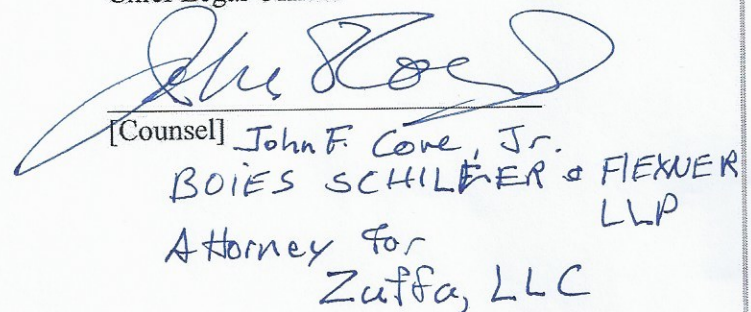 [Counsel] John F. Cove, Jr.
BOIES SCHILLER & FlEXNER
LLP
Attorney for
Zuffa, LLC